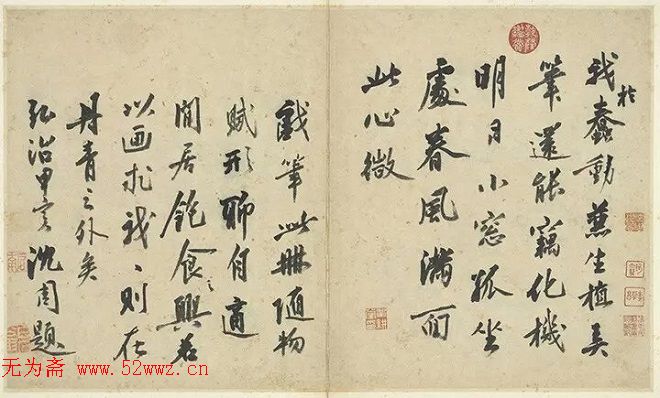 我於蠢動兼生植弄
筆還能竊化機
明月小窓孤坐
處春風滿面
此心微
戲筆此冊隨物
賦形聊自適
閒居飽食之興若
以画求我〻則在
丹青之外矣
弘治甲寅沈周題
无为斋 www.52wwz.cn